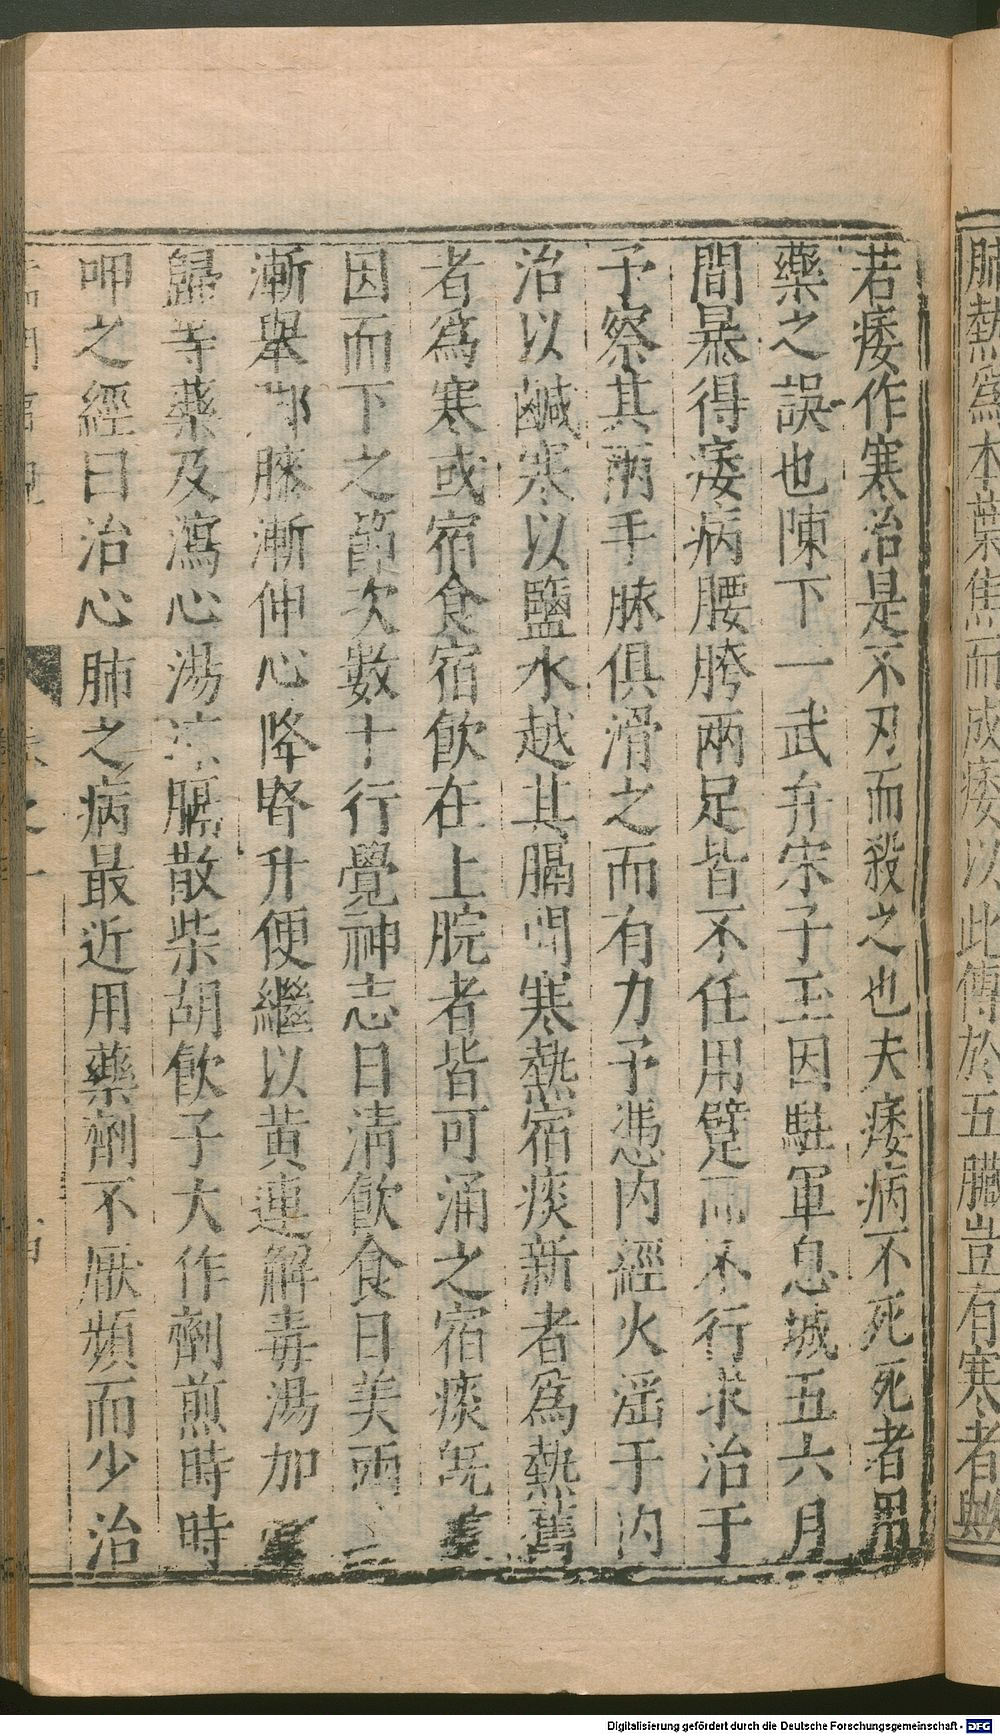 肺熱爲本葉焦而成痿以此傳於五臟豈有寒者歟
若痿作寒治是不刃而殺之也夫痿病不死死者用
藥之誤也陳下一武弁宋子玉因駐軍息城五六月
間暴得痿病腰胯兩足皆不任用躄而不行求治于
予察其兩手脉俱滑之而有力予憑内經火滛于内
治以鹹寒以鹽水越其膈間寒熱宿痰新者爲熱舊
者爲寒或宿食宿飲在上脘者皆可涌之宿痰旣
因而下之節次數十行覺神志日淸飲食日美兩
漸舉脚脉漸伸心降腎升便繼以黄連解毒湯加
歸等藥及瀉心湯凉膈散柴胡飲子大作劑煎時時
呷之經曰治心肺之病最近用藥劑不厭頻而少治
卷之一